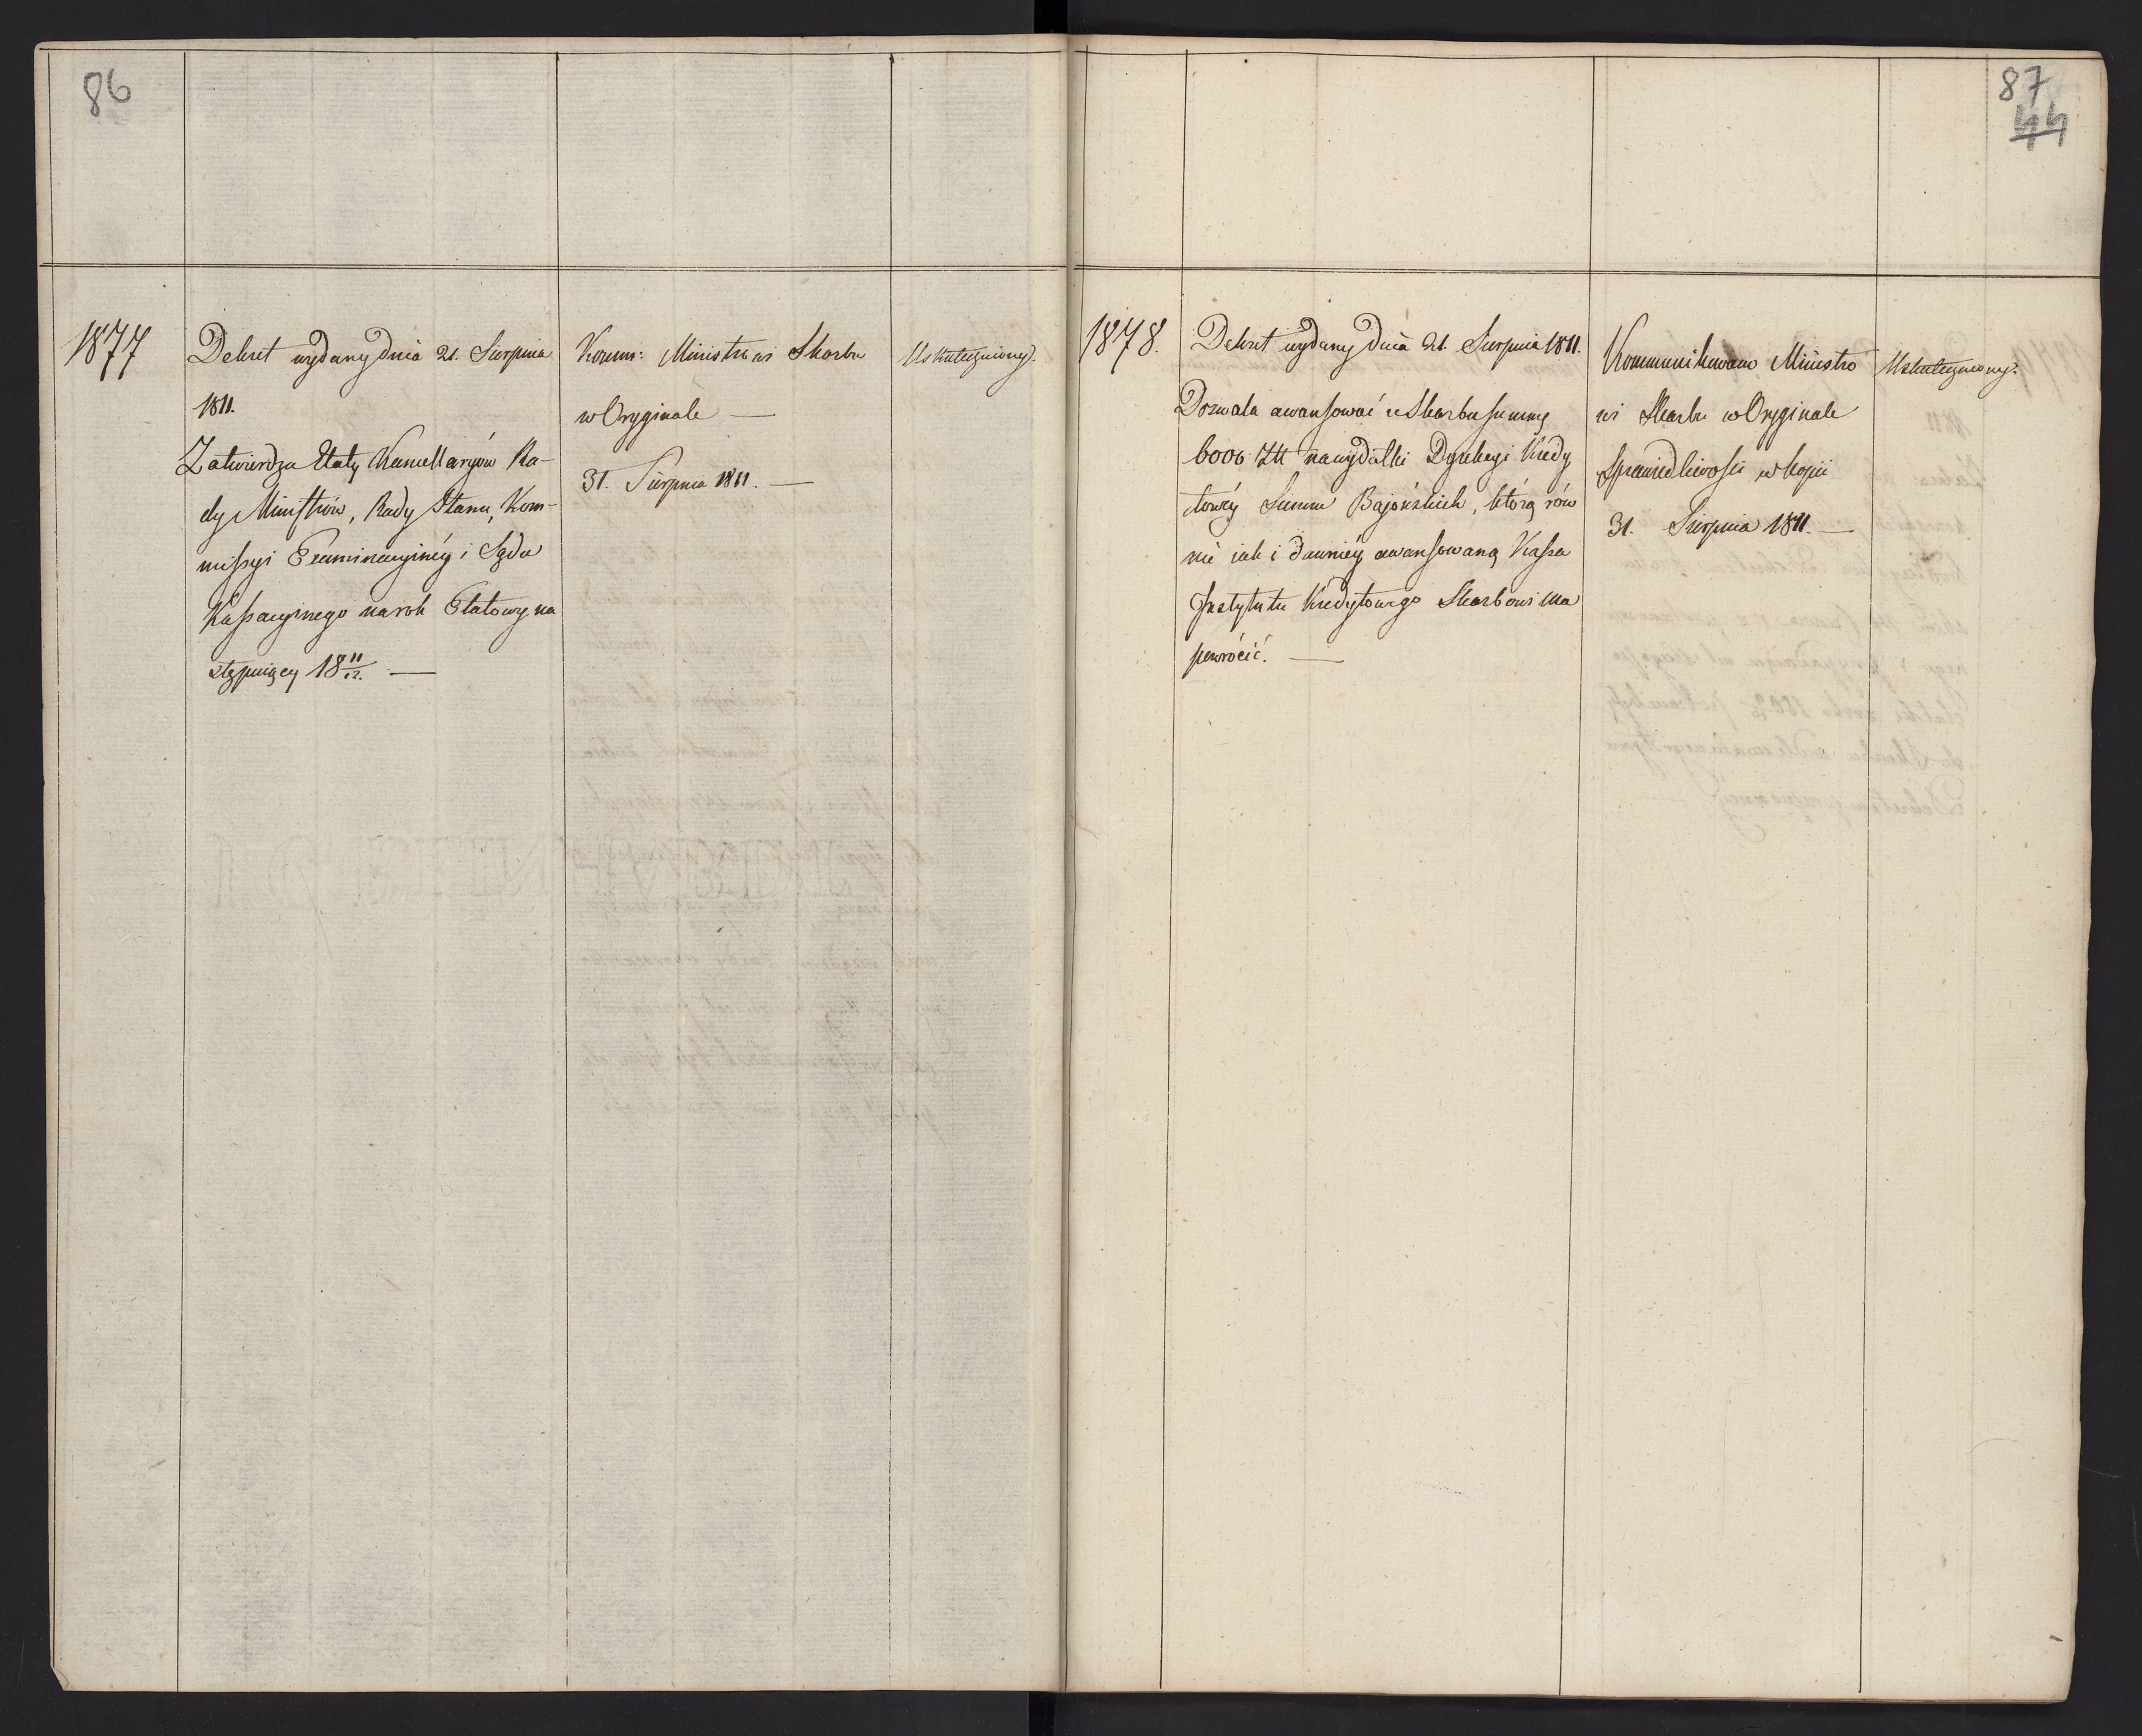 86
1877
Dekret wydany dnia 21. Sierpnia
1811.
Zatwierdza Etaty Kancellaryów Ra-
dy Ministrów, Rady Stanu, Kom-
missyi Examinacyinéy i Sądu
Kassacyinego na rok Etatowy na
stępuiący 18 11/12. —
Komm: Ministrowi Skarbu
w Oryginale —
31. Sierpnia 1811. —
Uskuteczniony.
87
44
1878.
Dekret wydany dnia 21. Sierpnia 1811.
Dozwala awansować z Skarbu summę
6000 Złł na wydatki Dyrekcyi Kredy
towéy Summ Bajońskich, którą rów
nie iak i dawniéy awansowaną Kassa
Instytutu Kredytowego Skarbowi ma
powrócić. —
Kommunikowano Ministro
wi Skarbu w Oryginale
Sprawiedliwości w kopii
31. Sierpnia 1811. —
Uskuteczniony.